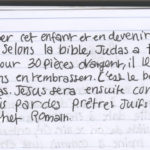 er cet enfant et en devenir
Selons la bible, Judas a t
our 30 pièces d'argent, il le
en l'embrassen. C'est le b
as. Jésus sera ensuite con
is par des prêtres Juifs
chef Romain.